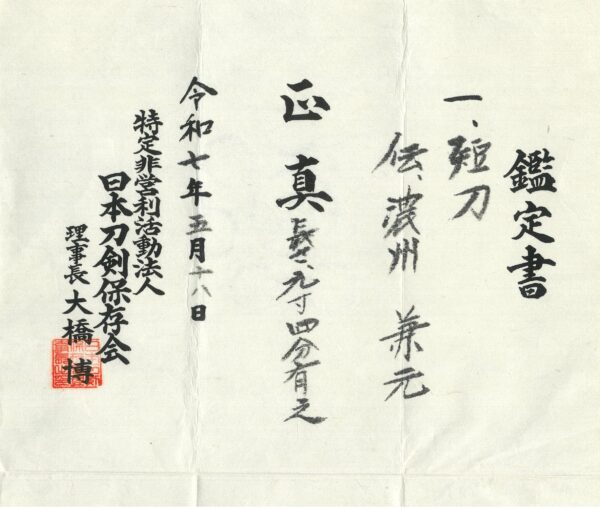 鑑定書
一、短刀
伝、濃州 兼元
正真
長サ、九寸四分有之
令和七年五月十八日
特定非営利活動法人
日本刀剣保存会
理事長 大橋 博